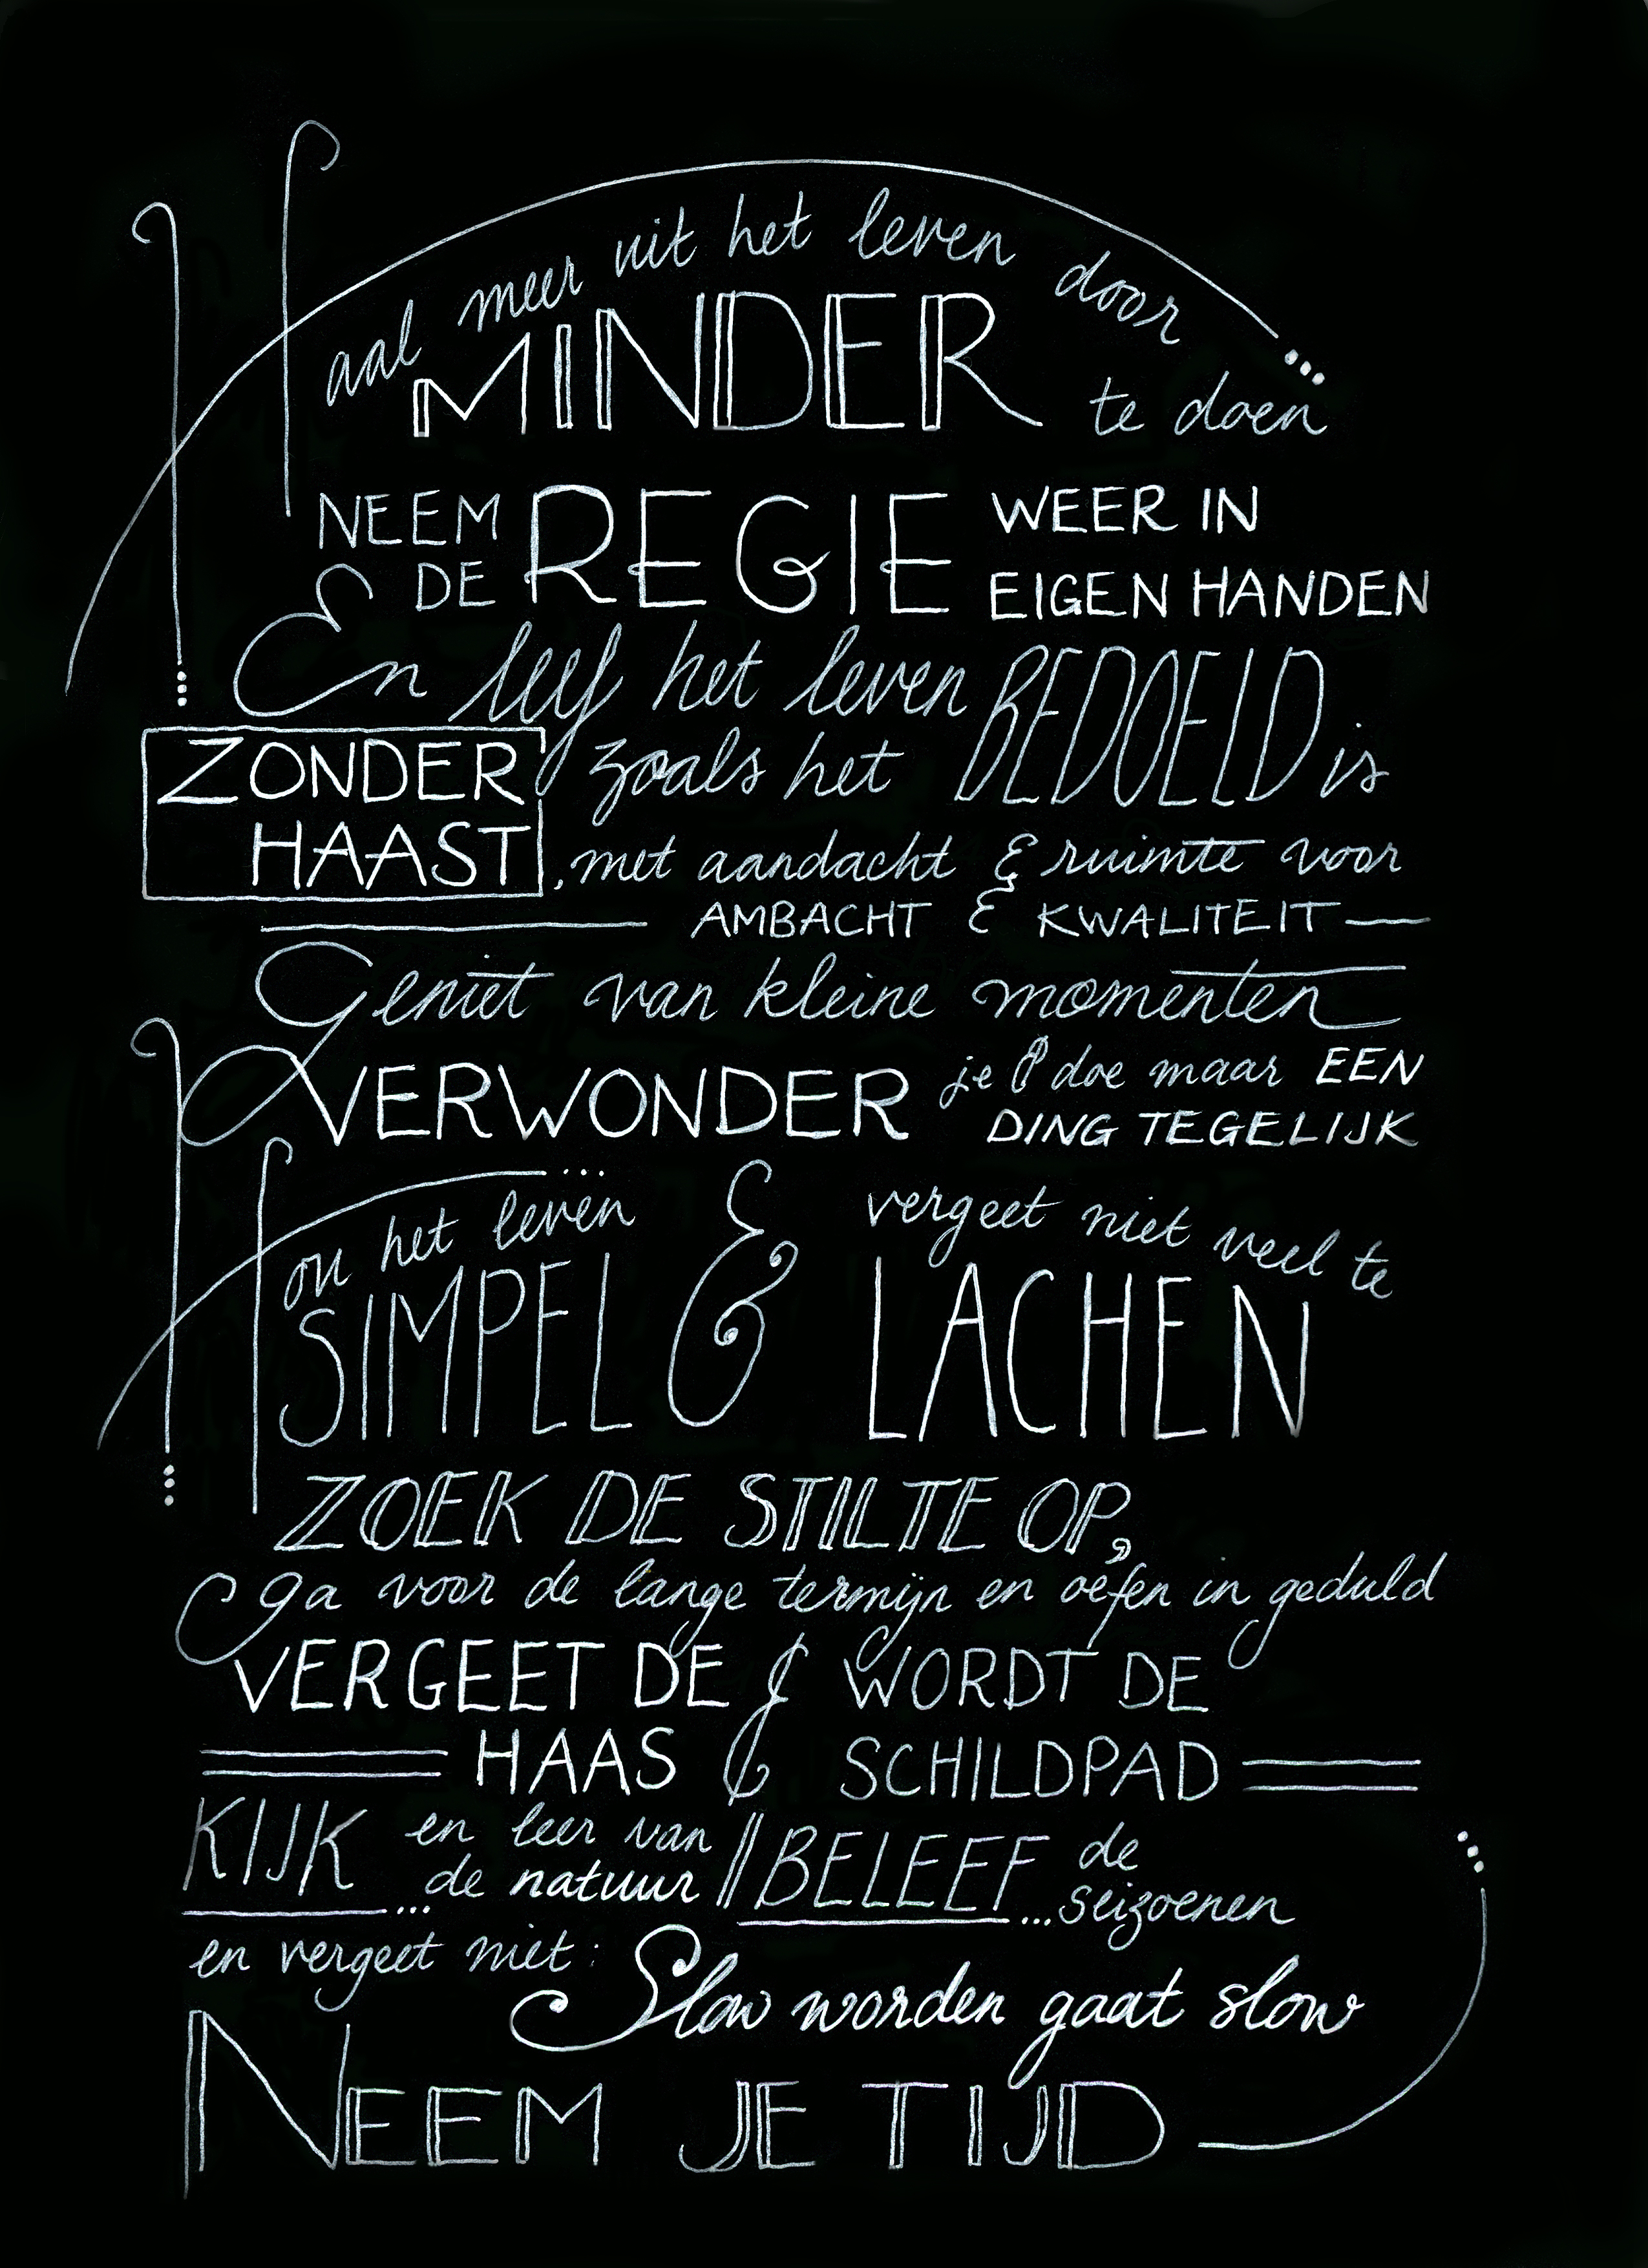 Haal meer uit het leven door
MINDER te doen
NEEM DE REGIE WEER IN
EIGEN HANDEN
En leef het leven
zoals het BEDOELD is
ZONDER
HAAST, met aandacht & ruimte voor
AMBACHT & KWALITEIT
Geniet van kleine momenten
VERWONDER je & doe maar EEN
DING TEGELIJK
Hou het leven
SIMPEL & vergeet niet veel te
LACHEN
ZOEK DE STILTE OP,
ga voor de lange termijn en oefen in geduld
VERGEET DE
HAAS & WORDT DE
SCHILDPAD
KIJK ... en leer van
de natuur // BELEEF ... de
seizoenen
en vergeet niet: Slow worden gaat slow
NEEM JE TIJD